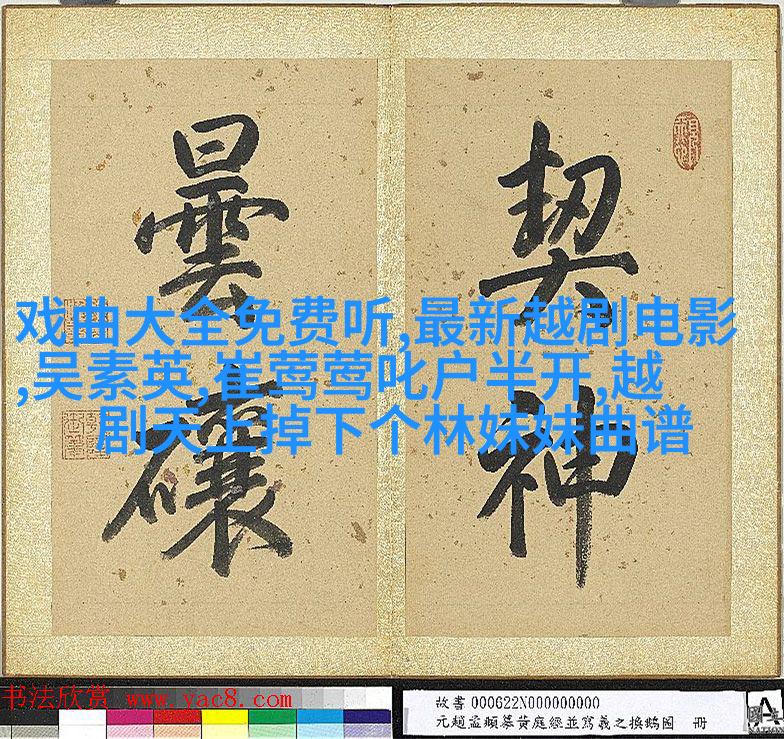 契神
曇
戏曲大全免费听,最新越剧电影
,吴素英,崔莺莺叱户半开,越
剧天上掉下个林妹妹曲谱
书法欣赏 www.yac8.com
故書000622N000000000
元趙孟頫摹黃庭經並寫羲之換鵝圖 冊